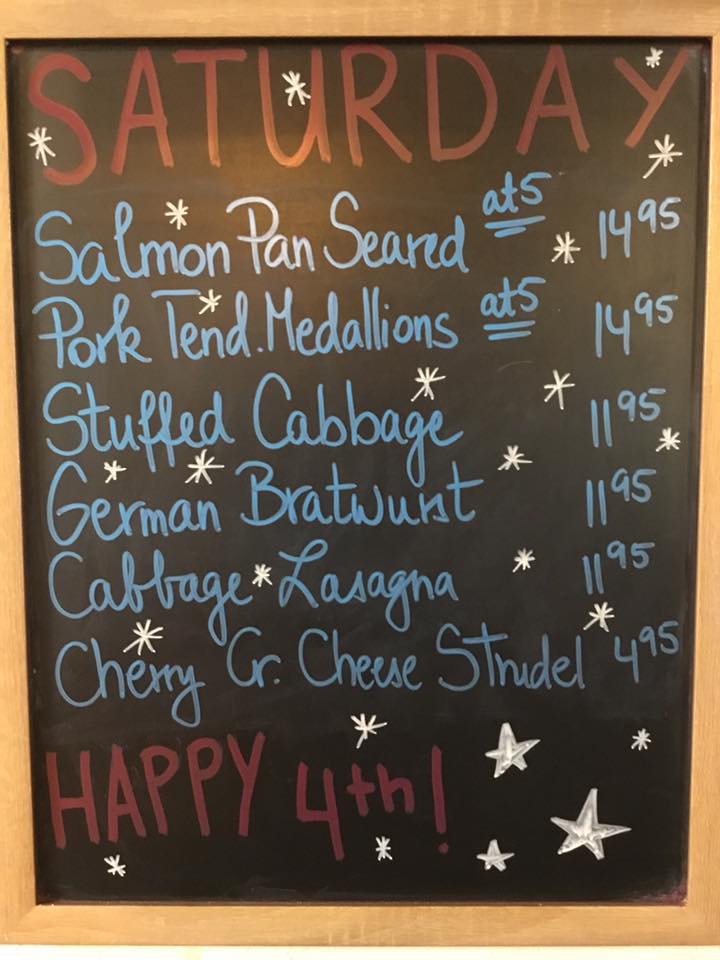 SATURDAY
Salmon Pan Seared at 5 14 95
Pork Tend. Medallions at 5 14 95
Stuffed Cabbage 11 95
German Bratwurst 11 95
Cabbage Lasagna 11 95
Cherry Cr. Cheese Strudel 4 95
HAPPY 4th!